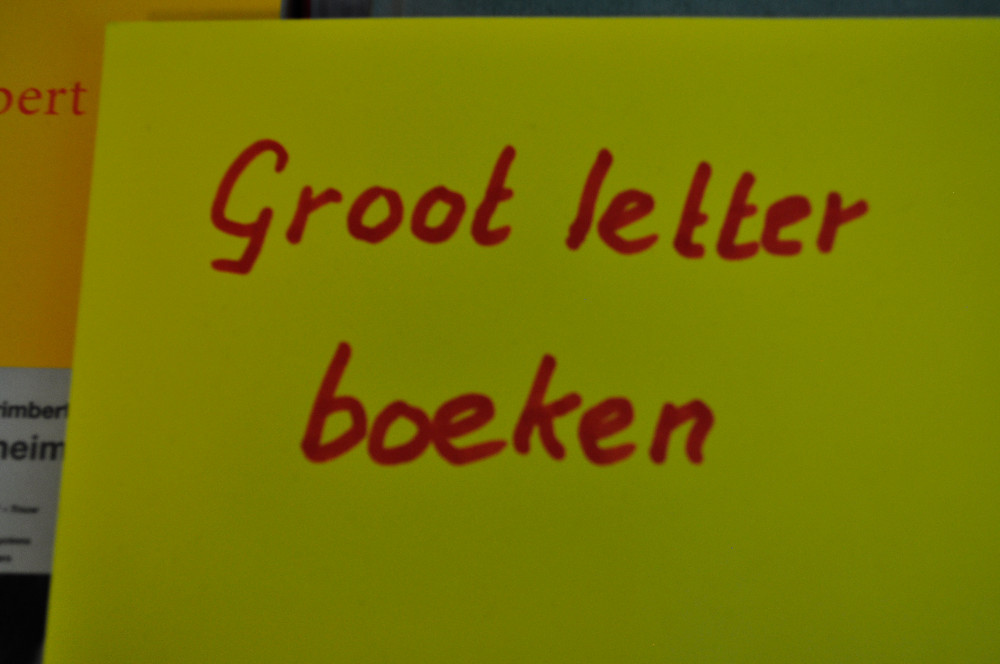 bert
Groot letter
boeken
rimbert
heim